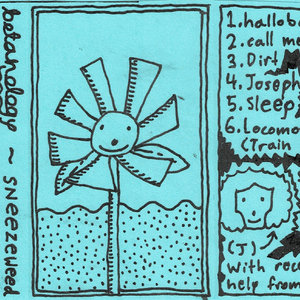 betanology ~ SNEEZEWEED
1. hallob
2. call me
3. Dirt
4. Joseph
5. Sleep
6. Locomo
(Train
(J)
with rec
help from